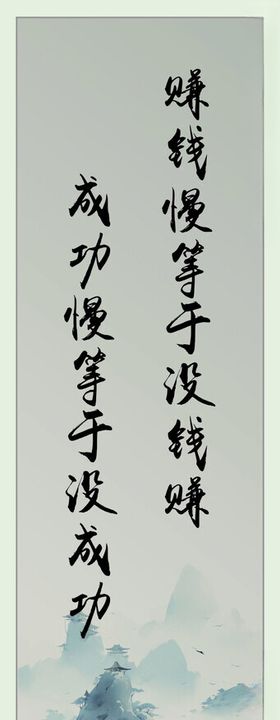 赚钱慢等于没钱赚
成功慢等于没成功